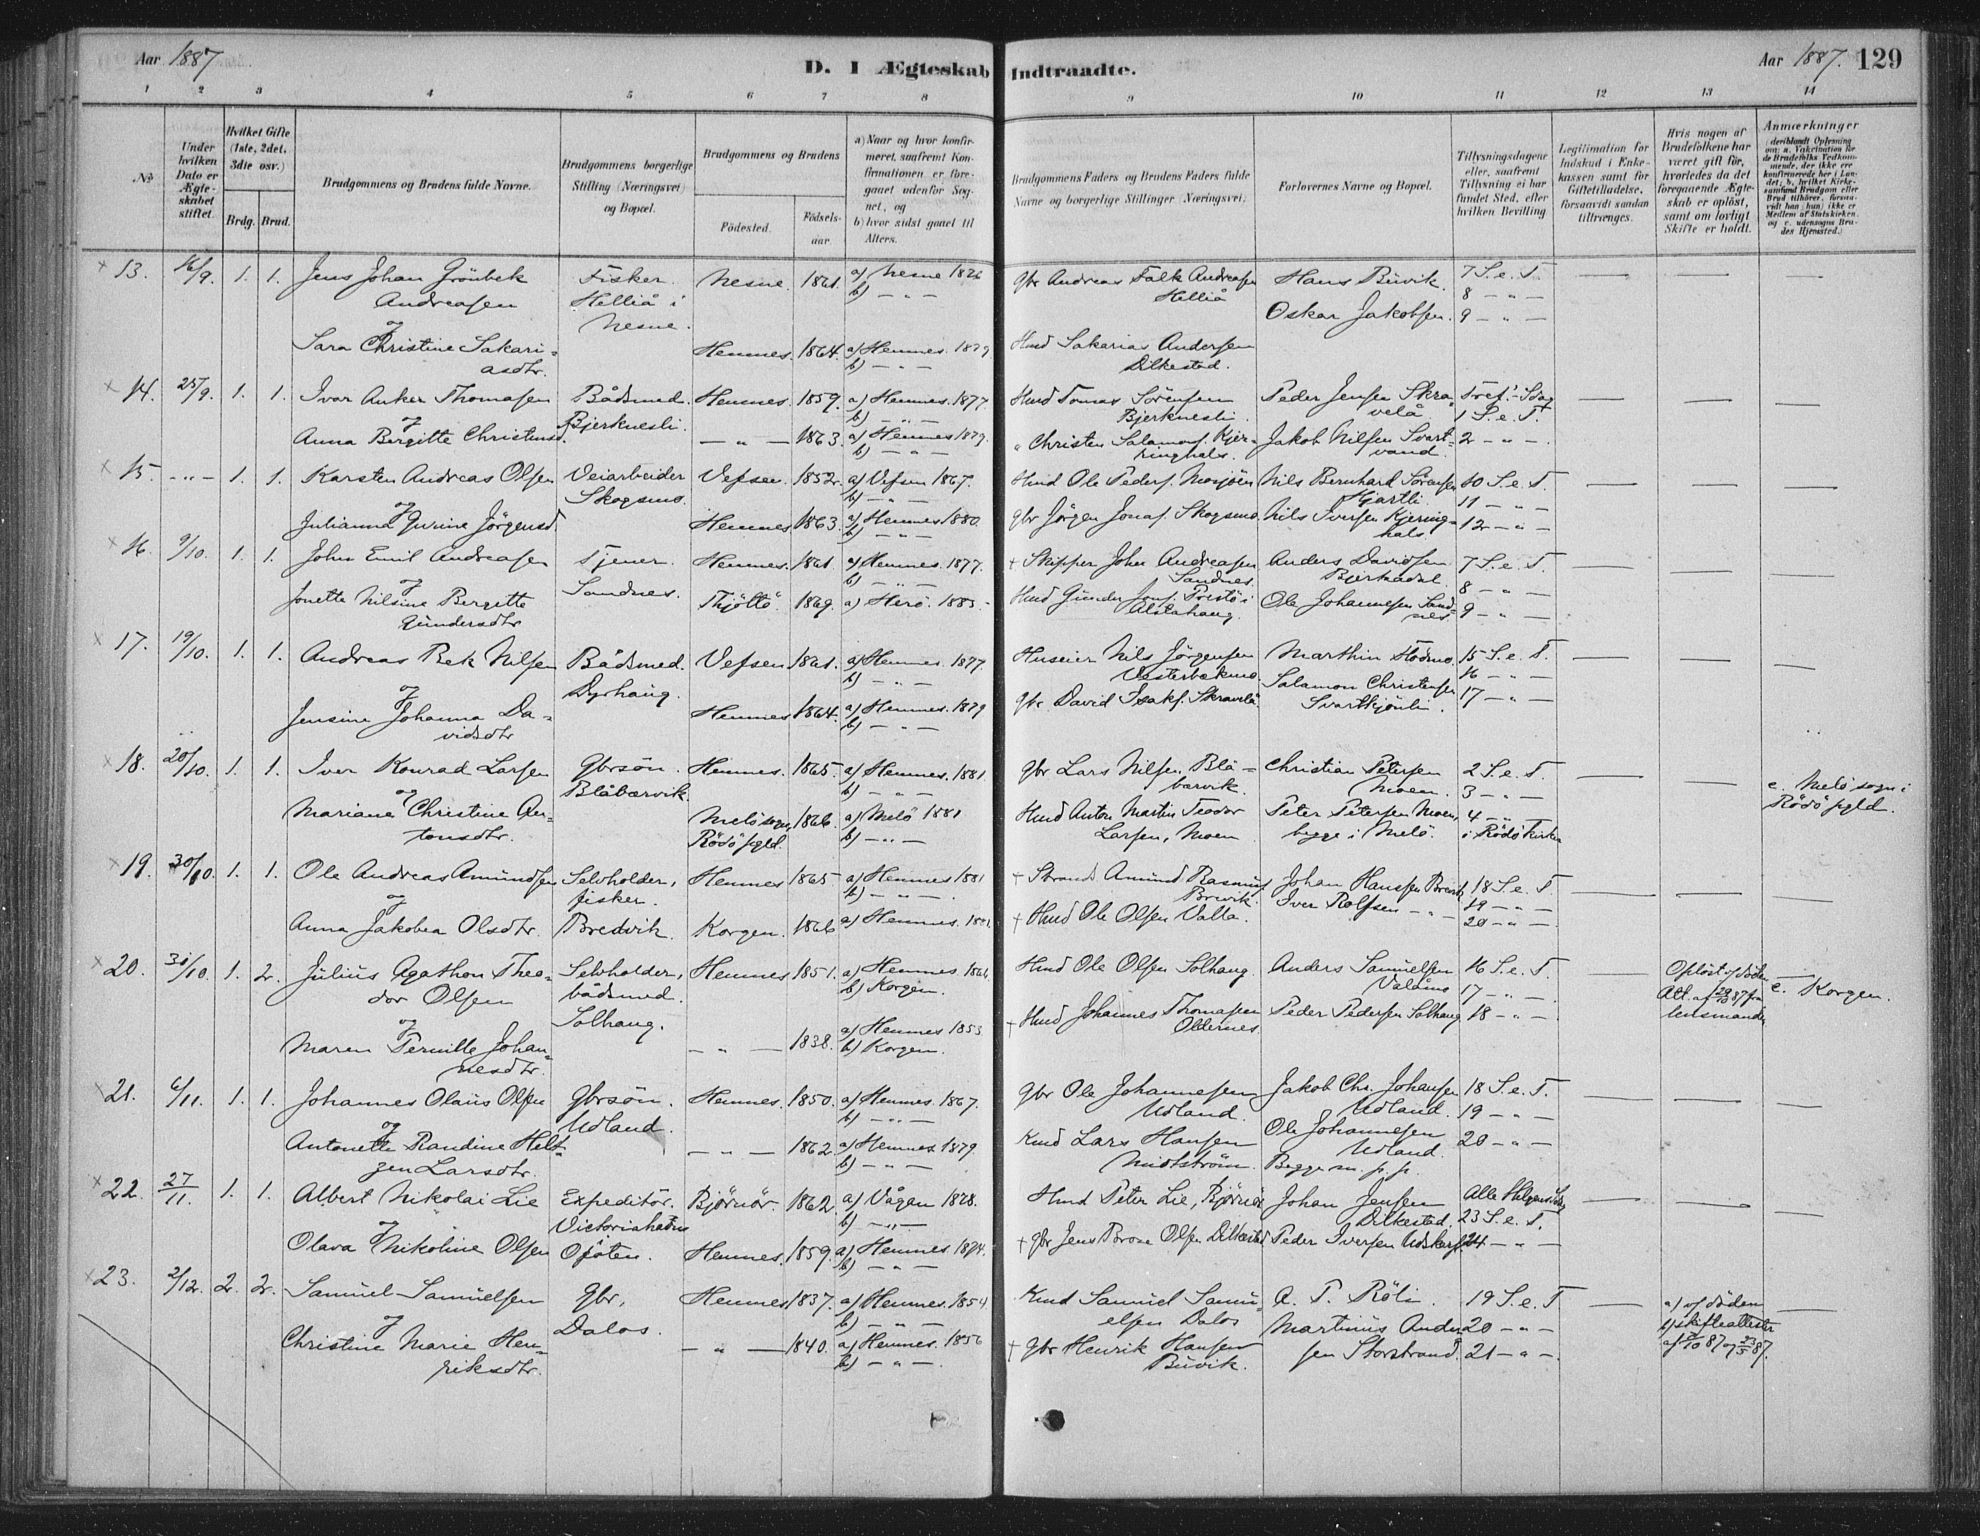 Aar 1887
D. I Ægteskab Indtraadte.
Aar 1887. 129
1 2 3 4 5 6 7 8 9 10 11 12 13 14
No
Under hvilken Dato er Ægteskabet stiftet.
Hvilket Gifte (1ste, 2det, 3die osv.)
Brdg. Brud.
Brudgommens og Brudens fulde Navne.
Brudgommens borgerlige Stilling (Næringsvei) og Bopæl.
Brudgommens og Brudens
Fødested.
Fødselsaar.
a) Naar og hvor konfirmeret, saafremt Konfirmationen er foregaaet udenfor Sognet, og
b) hvor sidst gaaet til Alters.
Brudgommens Faders og Brudens Faders fulde Navne og borgerlige Stillinger (Næringsvei).
Forlovernes Navne og Bopæl.
Tillysningsdagene eller, saafremt Tillysning ei har fundet Sted, efter hvilken Bevilling
Legitimation for Indskud i Enkekassen samt for Giftetilladelse, forsaavidt saadan tiltrænges.
Hvis nogen af Brudefolkene har været gift før, hvorledes da det foregaaende Ægteskab er opløst, samt om lovligt Skifte er holdt.
Anmærkninger
13. 16/9. 1. 1. Jens Johan Grönbek Fisker. Nesne. 1861. a) Nesne 1876 Gbr Andreas Falk Andreasen Hans Büvik. 7 S. e. T.
Andreasen Helliå i b) — " — Helliå 8 — " —
og Nesne. Oskar Jakobsen. 9 — " —
Sara Christine Sakari- Hemnes. 1864. a) Hemnes. 1879 Hmd Sakarias Andersen
asdtr. b) — " — Dilkestad.
14. 25/9. 1. 1. Ivar Anker Thomasen Bådsmed. Hemnes. 1859. a) Hemnes. 1877. Hmd Tomas Sörensen Peder Jensen Skra- Tref.-Sdag
og Bjerknesli. b) — " — Bjerknesli. velå 1 S. e. T.
Anna Bergitte Christensd. — " — 1863. a) Hemnes 1879. " Christen Salamons. Kjer- Jakob Nilsen Svart- 2 — " —
b) — " — ringhals. vand.
15. — " — 1. 1. Karsten Andreas Olsen Veiarbeider Vefsen. 1852. a) Vefsen 1867. Hmd Ole Peders. Mosjöen Nils Bernhard Sörensen 10 S. e. T.
og Skogsmo. b) — " — Hjartli. 11 — " —
Julianna Gurine Jörgensd. Hemnes 1863. a) Hemnes 1880. Gbr Jörgen Jonas. Skogsmo. Nils Iversen Kjering- 12 — " —
b) — " — hals.
16. 9/10. 1. 1. John Emil Andreasen Tjener. Hemnes. 1861. a) Hemnes. 1877. + Skipper John Andreasen Anders Davidsen 7 S. e. T.
og Sandnes. b) — " — Sandnes. Bjerkadal. 8 — " —
Jonetta Nilsine Bergitte Thjöttö. 1869. a) Herö. 1883. Hmd Gunder Jens. Prestö i Ole Johannesen Sand- 9 — " —
Gundersdtr Alstahaug. nes
17. 19/10. 1. 1. Andreas Bek Nilsen Bådsmed. Vefsen 1861. a) Hemnes. 1877. Huseier Nils Jörgensen Marthin Stödmo. 15 S. e. T.
og Dyrhaug. b) — " — Vesterbekmo. Salamon Christensen 16 — " —
Jensine Johanna Da- Hemnes 1864. a) Hemnes. 1879 Gbr David Isaks. Skravelå. Svartkjönli. 17 — " —
vidsdtr b) — " —
18. 20/10. 1. 1. Iver Konrad Larsen Gbrsön. Hemnes. 1865. a) Hemnes. 1881. Gbr Lars Nilsen, Blå- Christian Petersen 2 S. e. T.
og Blåbærvik. b) — " — bærvik. Moen. 3 — " — c. Melö sogn i
Mariane Christine An- Melö sogn, 1866. a) Melö 1881 Hmd Anton Martin Teodor Peter Petersen Moen, 4 — " — Rödö pgld.
tonsdtr. Rödö pgld. b) — " — Larsen, Moen. begge i Melö. i Rödö Kirke
19. 30/10. 1. 1. Ole Andreas Amundsen Selvholder, Hemnes 1865 a) Hemnes 1881 + Strands. Amund Rasmus. Johan Hansen Brevik 18 S. e. T.
og fisker. b) — " — Brevik. Iver Rolfsen — " — 19 — " —
Anna Jakobea Olsdtr. Bredvik. Korgen. 1866 a) Hemnes. 1881. + Hmd Ole Olsen Valla. 20 — " —
20. 30/10. 1. 2. Julius Agathon Theo- Selvholder, Hemnes 1851. a) Hemnes 1866. Hmd Ole Olsen Solhaug. Anders Samuelsen 16 S. e. T. Oplöst v. döden.
dor Olsen bådsmed. b) Korgen. Valåmo 17 — " — Att. af 29/10 87 fra c. Korgen.
og Solhaug. + Hmd Johannes Thomasen Peder Pedersen Solhaug 18 — " — lensmanden
Maren Pernille Johan- — " — 1838. a) Hemnes 1853 Oldernes.
nesdtr. b) Korgen.
21. 6/11. 1. 1. Johannes Olaus Olsen Gbrsön. Hemnes. 1850. a) Hemnes. 1867. Gbr Ole Johannesen Jakob Chr. Johansen 18 S. e. T.
og Udland. b) — " — Udland. Udland. 19 — " —
Antonette Randine Helt- — " — 1862 a) Hemnes 1879. Kmd Lars Hansen Ole Johannesen 20 — " —
zen Larsdtr. b) — " — Midtström. Udland.
Begge m. p. p.
22. 27/11. 1. 1. Albert Nikolai Lie Expeditör. Bjørnör. 1862. a) Vågan 1878. Hmd Peter Lie, Bjørnör Johan Jensen Alle Helgens Sdag
og Victoriahavn b) — " — Dilkestad. 23 S. e. T.
Olava Nikoline Olsen Ofoten. Hemnes. 1859. a) Hemnes. 1874. + Gbr Jens Brose Olsen Dilkestad Peder Iversen Udskarp. 24 — " —
b) — " —
23. 2/12. 2. 2. Samuel Samuelsen Gbr, Hemnes 1837. a) Hemnes. 1854 Kmd Samuel Samu- A. T. Röli. 19 S. e. T a) v. döden
og Dalos. b) — " — elsen Dalos Martinus Ander- 20 — " — b) skifteattester
Christine Marie Hen- — " — 1840. a) Hemnes. 1856 + Gbr Henrik Hansen sen Storstrand. 21 — " — af 5/10 87 og 23/5 87.
riksdtr. b) — " — Buvik.